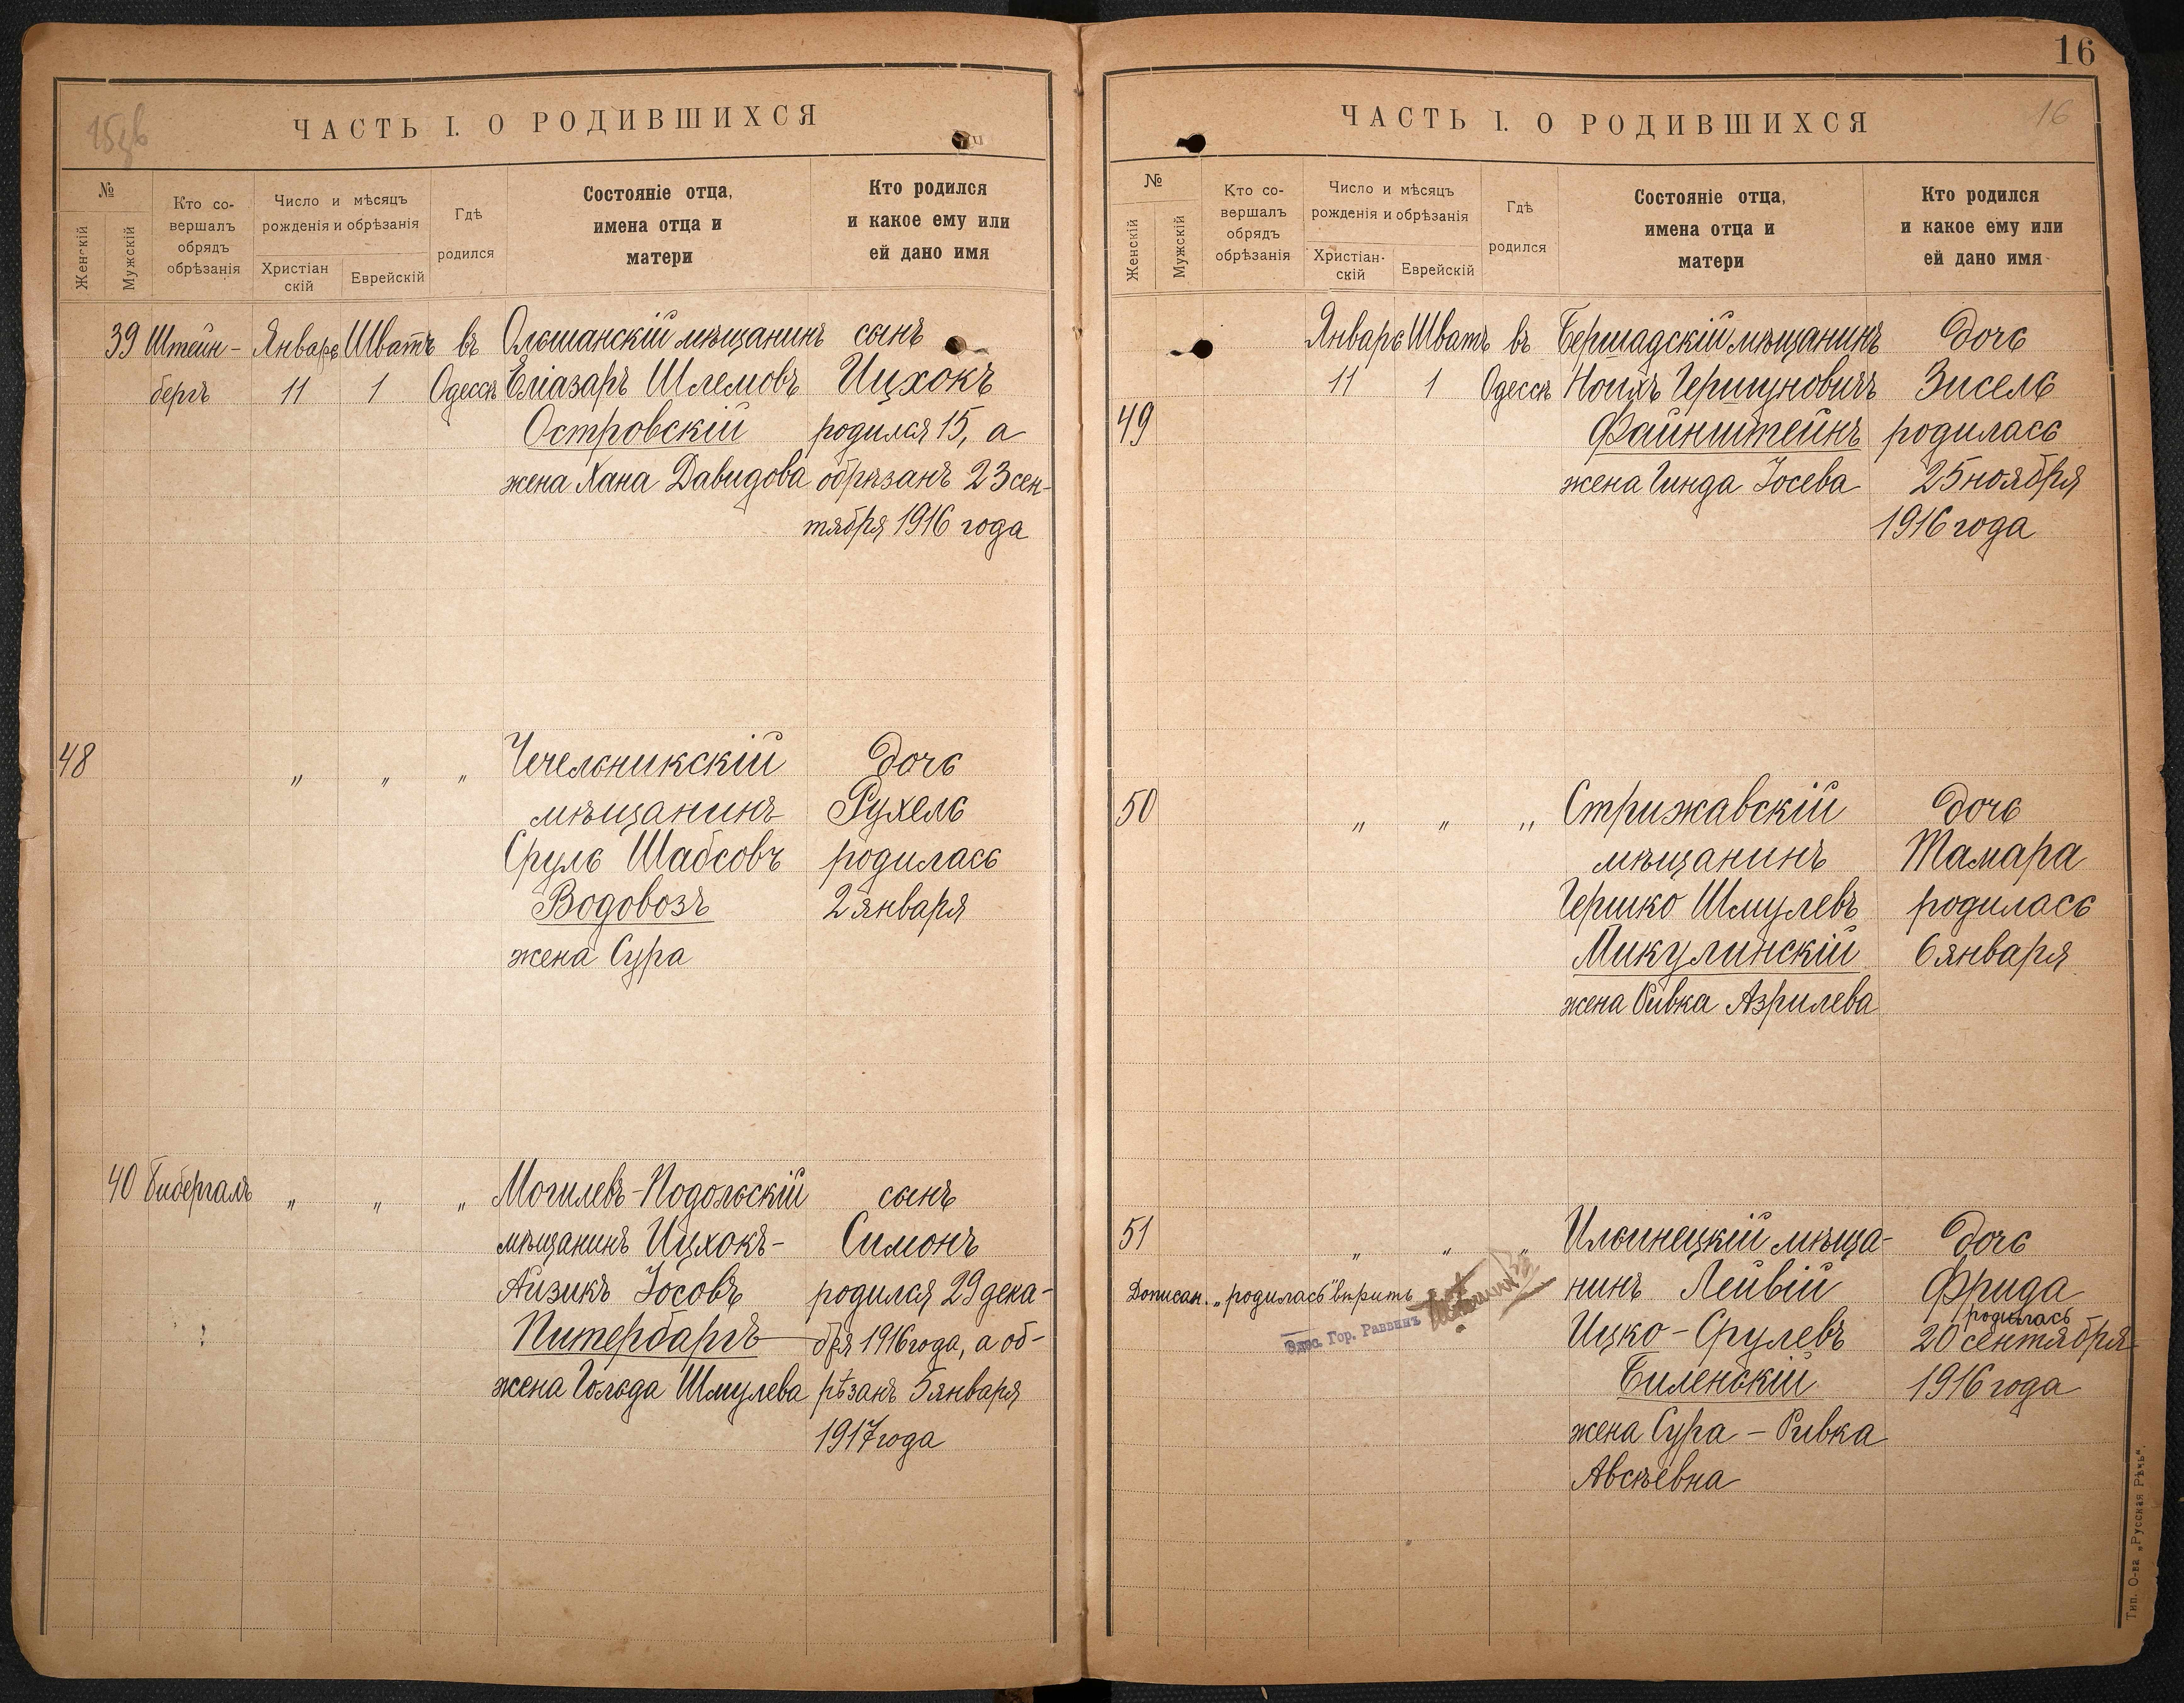 ЧАСТЬ I. О РОДИВШИХСЯ
№
Женскій
Мужскій
Кто со-
вершалъ
обрядъ
обрѣзанія
Число и мѣсяцъ
рожденія и обрѣзанія
Христіан
скій
Еврейскій
Гдѣ
родился
Состояніе отца,
имена отца и
матери
Кто родился
и какое ему или
ей дано имя
39 Штейн- Январь Шватъ въ Ольшанскій мѣщанинъ сынъ
бергъ 11 1 Одессѣ Еліазаръ Шлемовъ Ицхокъ
Островскій родился 15, а
жена Хана Давидова обрѣзанъ 23 сен-
тября 1916 года
48 „ „ „ Чечельникскій дочь
мѣщанинъ Рухель
Сруль Шабсовъ родилась
Водовозъ 2 января
жена Сура
40 Бибергалъ „ „ „ Могилевъ-Подольскій сынъ
мѣщанинъ Ицхокъ- Симонъ
Айзикъ Іосовъ родился 29 дека-
Питербаргъ бря 1916 года, а об-
жена Гольда Шмулева рѣзанъ 5 января
1917 года
16
ЧАСТЬ I. О РОДИВШИХСЯ
16
№
Женскій
Мужскій
Кто со-
вершалъ
обрядъ
обрѣзанія
Число и мѣсяцъ
рожденія и обрѣзанія
Христіан-
скій
Еврейскій
Гдѣ
родился
Состояніе отца,
имена отца и
матери
Кто родился
и какое ему или
ей дано имя
Январь Шватъ въ Бершадскій мѣщанинъ дочь
11 1 Одессѣ Ноихъ Гершуновичъ Зисель
49 Файнштейнъ родилась
жена Гинда Іосева 25 ноября
1916 года
50 „ „ „ Стрижавскій дочь
мѣщанинъ Тамара
Гершко Шмулевъ родилась
Микулинскій 6 января
жена Ривка Азрилева
51 „ „ „ Ильинецкій мѣща- дочь
Дописан. „родилась" вѣрить нинъ Лейвій Фрида
родилась
Одес. Гор. Раввинъ Ицко-Срулевъ 20 сентября
Биленькій 1916 года
жена Сура-Ривка
Авсѣевна
Тип. О-ва „Русская Рѣчь".